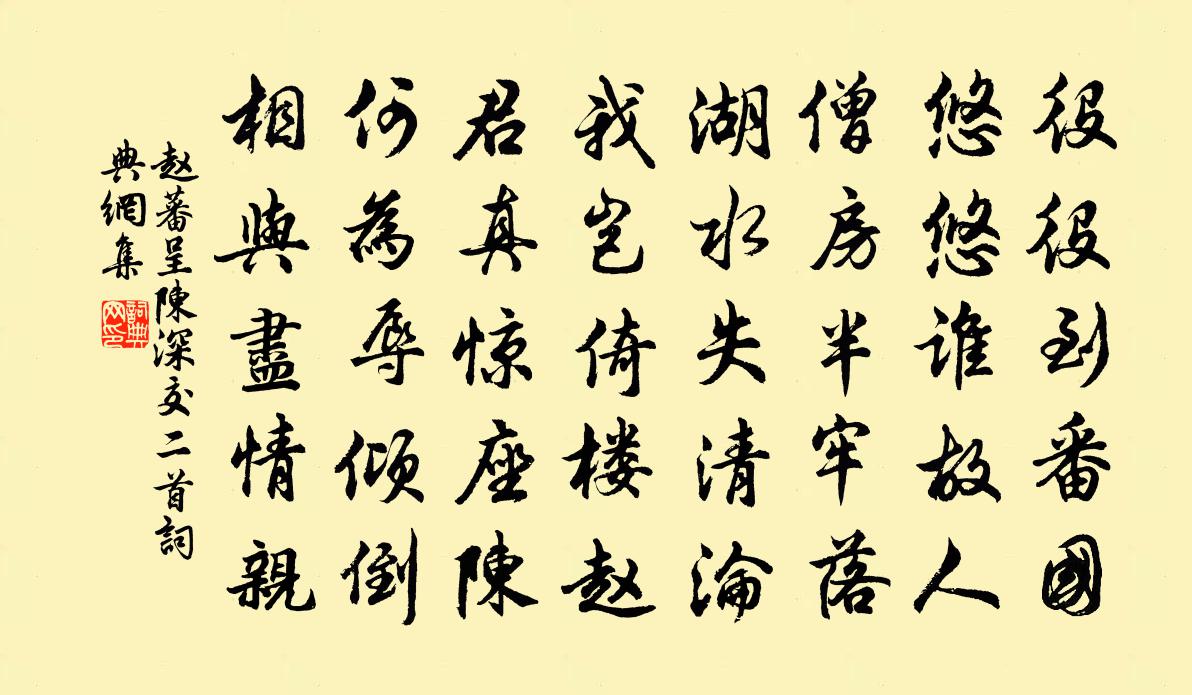 役役到番國
悠悠誰故人
僧房半牢落
湖水失清淪
我岂倚楼赵
君真惊座陳
何為辱倾倒
相與盡情親
赵蕃呈陳深交二首詞
典網集
詞典
网印